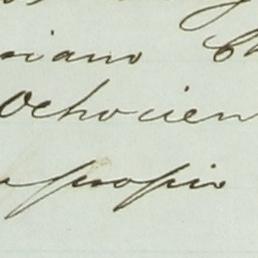 siano
Ochocien
propio